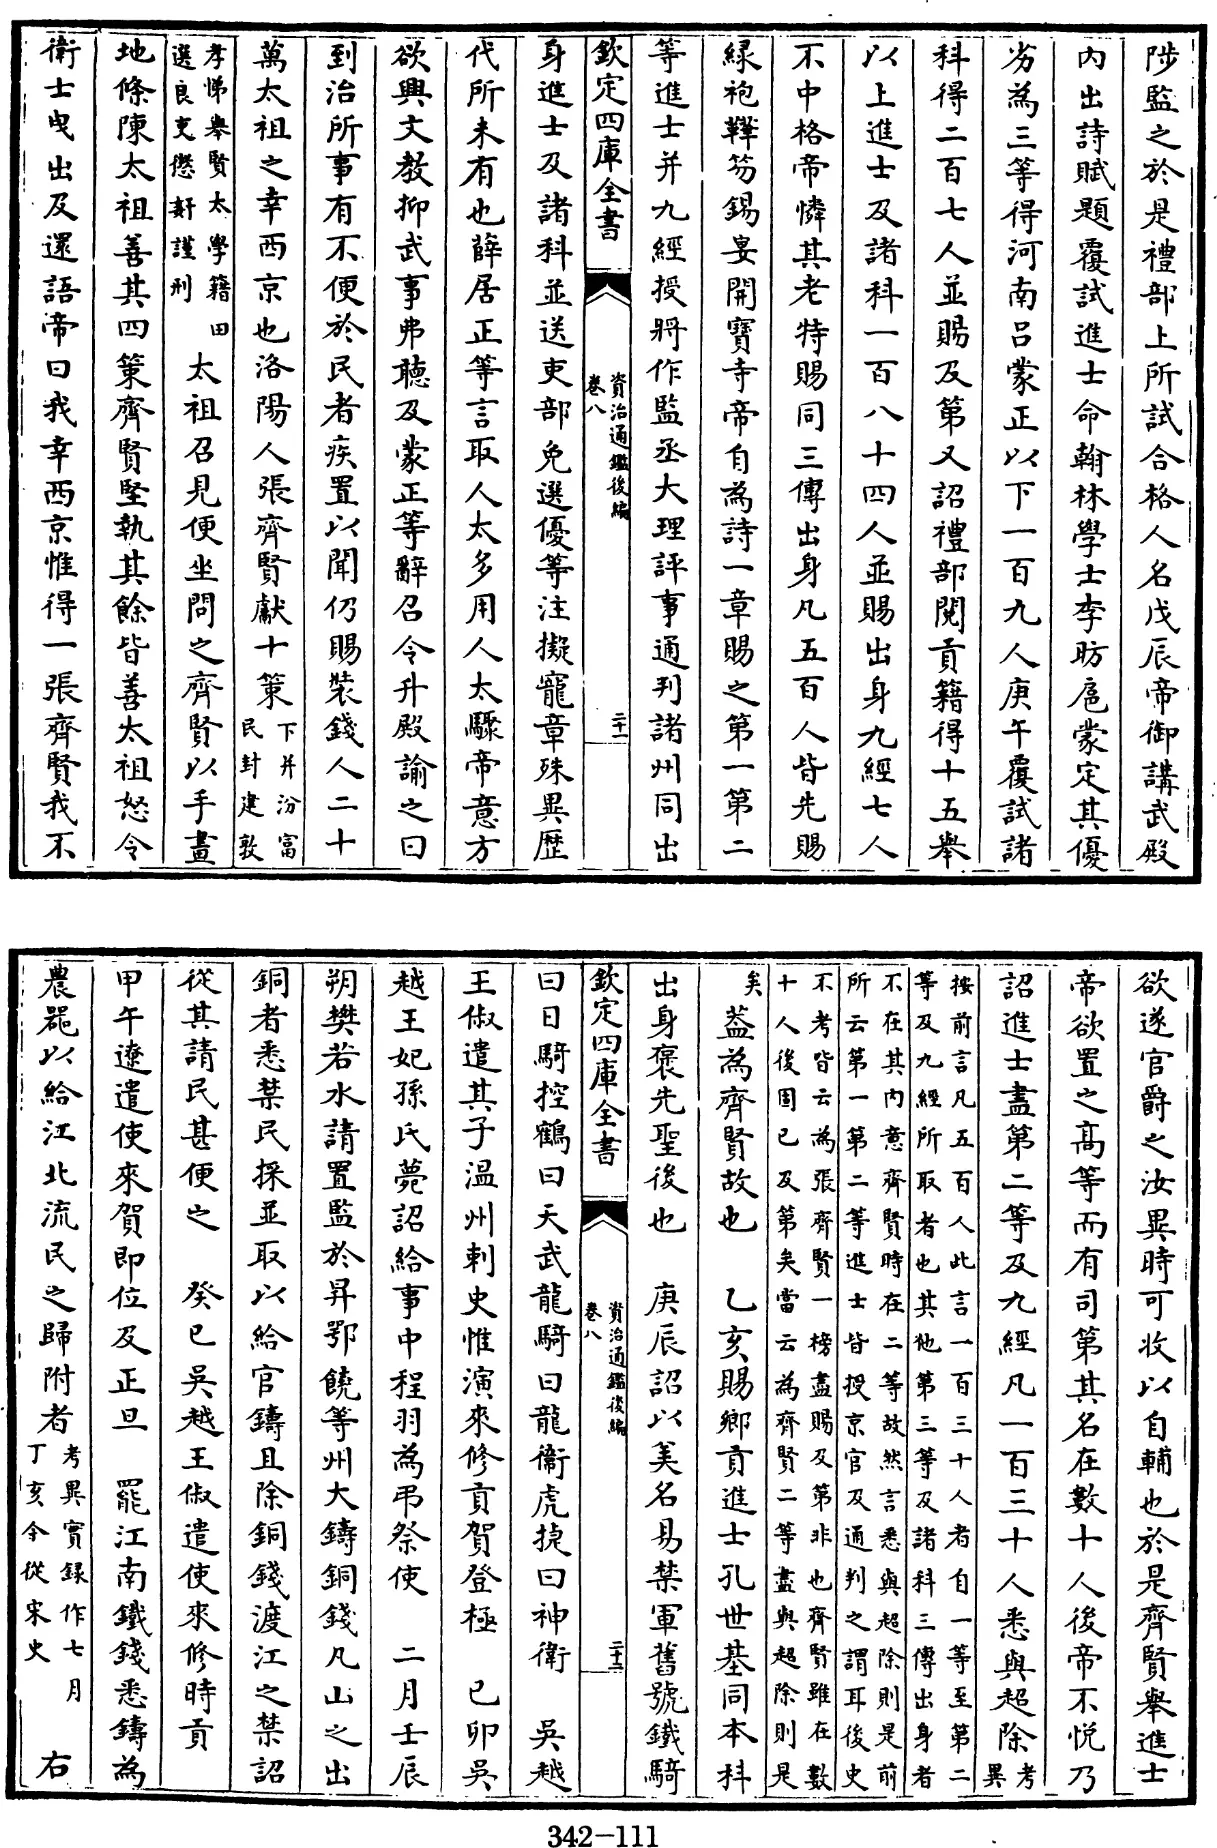 陟監之於是禮部上所試合格人名戊辰帝御講武殿
内出詩賦題覆試進士命翰林學士李昉扈蒙定其優
劣為三等得河南吕蒙正以下一百九人庚午覆試諸
科得二百七人並賜及第又詔禮部閲貢籍得十五舉
以上進士及諸科一百八十四人並賜出身九經七人
不中格帝憐其老特賜同三傳出身凡五百人皆先賜
緑袍鞾笏錫宴開寶寺帝自為詩一章賜之第一第二
等進士并九經授將作監丞大理評事通判諸州同出
欽定四庫全書
資治通鑑後編
卷八
二十一
身進士及諸科並送吏部免選優等注擬寵章殊異歴
代所未有也薛居正等言取人太多用人太驟帝意方
欲興文教抑武事弗聴及蒙正等辭召令升殿諭之曰
到治所事有不便於民者疾置以聞仍賜裝錢人二十
萬太祖之幸西京也洛陽人張齊賢獻十策
下并汾富
民封建敦
孝悌舉賢太學籍田
選良吏懲奸謹刑
太祖召見便坐問之齊賢以手畫
地條陳太祖善其四策齊賢堅執其餘皆善太祖怒令
衛士曳出及還語帝曰我幸西京惟得一張齊賢我不
欲遂官爵之汝異時可收以自輔也於是齊賢舉進士
帝欲置之髙等而有司第其名在數十人後帝不悦乃
詔進士盡第二等及九經凡一百三十人悉與超除
考
異
按前言凡五百人此言一百三十人者自一等至第二
等及九經所取者也其他第三等及諸科三傳出身者
不在其内意齊賢時在二等故然言悉與超除則是前
所云第一第二等進士皆授京官及通判之謂耳後史
不考皆云為張齊賢一榜盡賜及第非也齊賢雖在數
十人後固已及第矣當云為齊賢二等盡與超除則是
矣
葢為齊賢故也　乙亥賜鄉貢進士孔世基同本科
出身褒先聖後也　庚辰詔以美名易禁軍舊號鐵騎
欽定四庫全書
資治通鑑後編
卷八
二十二
曰日騎控鶴曰天武龍騎曰龍衛虎捷曰神衛　吳越
王俶遣其子温州刺史惟演來修貢賀登極　己卯吳
越王妃孫氏薨詔給事中程羽為弔祭使　二月壬辰
朔樊若水請置監於昇鄂饒等州大鑄銅錢凡山之出
銅者悉禁民採並取以給官鑄且除銅錢渡江之禁詔
從其請民甚便之　癸巳吳越王俶遣使來修時貢
甲午遼遣使來賀即位及正旦　罷江南鐵錢悉鑄為
農器以給江北流民之歸附者
考異實録作七月
丁亥今從宋史
右
342-111